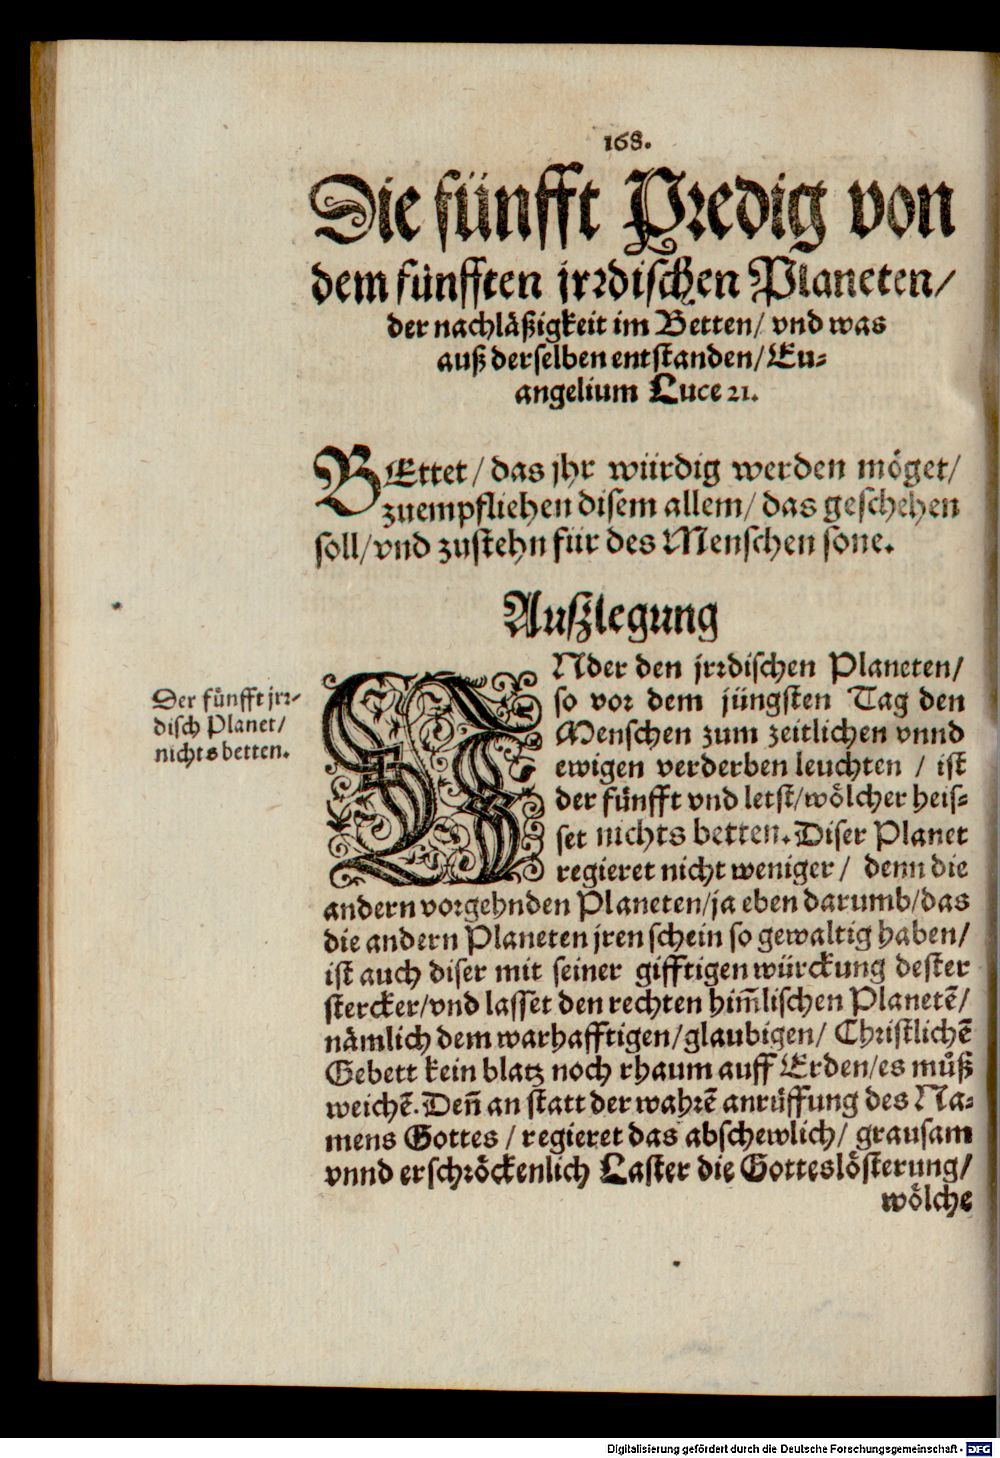 168.
Die fünfft Predig von
dem fünfften jrrdischen Planeten/
der nachläßigkeit im Betten/ vnd was
auß derselben entstanden/ Eu-
angelium Luce 21.
BEttet/ das jhr würdig werden möget/
zuempfliehen disem allem/ das geschehen
soll/ vnd zustehn für des Menschen sone.
Außlegung
Der fünfft jrr-
disch Planet/
nichts betten.
VNder den jrrdischen Planeten/
so vor dem jüngsten Tag den
Menschen zum zeitlichen vnnd
ewigen verderben leuchten / ist
der fünfft vnd letst/ wölcher heis-
set nichts betten. Diser Planet
regieret nicht weniger/ denn die
andern vorgehnden Planeten/ ja eben darumb/ das
die andern Planeten jren schein so gewaltig haben/
ist auch diser mit seiner gifftigen würckung dester
stercker/ vnd lasset den rechten him̄lischen Planetē/
nämlich dem warhafftigen/ glaubigen/ Christlichē
Gebett kein blatz noch rhaum auff Erden/ es muͦß
weichē. Den̄ an statt der wahrē anruͤffung des Na-
mens Gottes / regieret das abschewlich/ grausam
vnnd erschröckenlich Laster die Gotteslösterung/
wölche
Digitalisierung gefördert durch die Deutsche Forschungsgemeinschaft - DFG